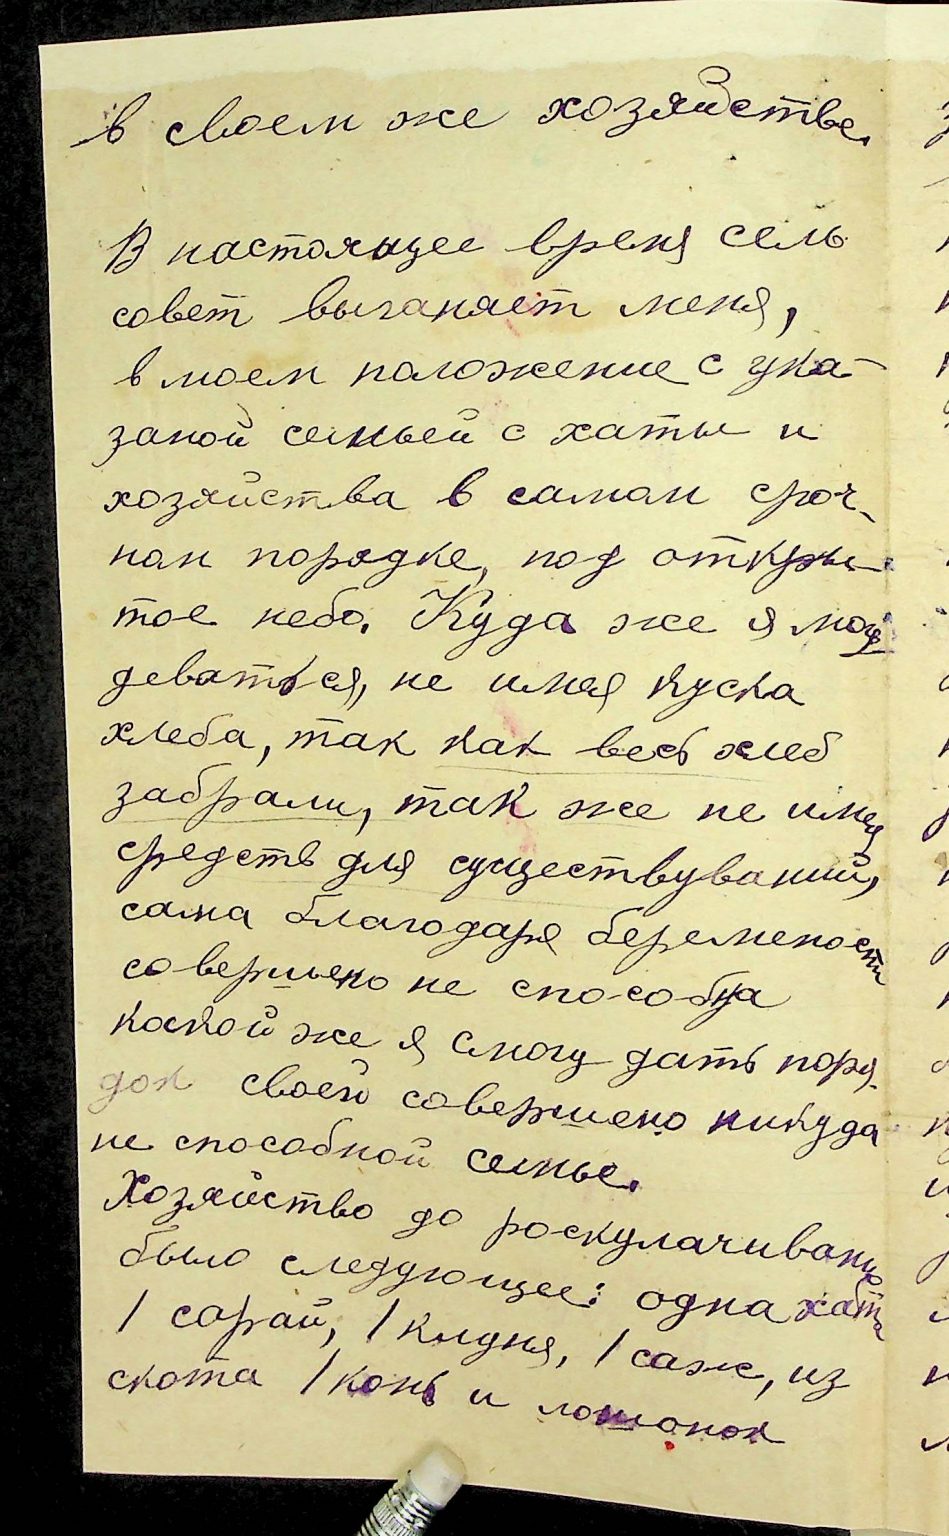 в своем же хозяйстве.
В настоящее время сель
совет выганяет меня,
в моем положение с ука-
заной семьей с хаты и
хозяйства в самом сроч-
ном порядке, под откры-
тое небо. Куда же я могу
деваться, не имея куска
хлеба, так как весь хлеб
забрали, так же не имея
средств для существуваний,
сама благодаря беремености
совершено не способна
какой же я смогу дать поря-
док своей совершено никуда
не способной семье.
Хозяйство до роскулачивание
было следующее: одна хата
1 сарай, 1 клуня, 1 саж, из
скота 1 конь и лошонок